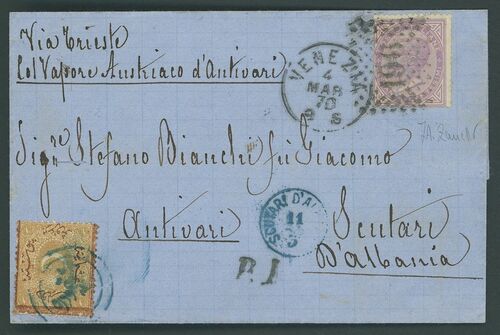 Via Trieste
Col Vapore Austriaco d'Antivari
VENEZIA
4
MAR
70
Sigre Stefano Bianchi fu Giacomo
Antivari
Scutari
D'Albania
SCUTARI D'A
11
3
P.I